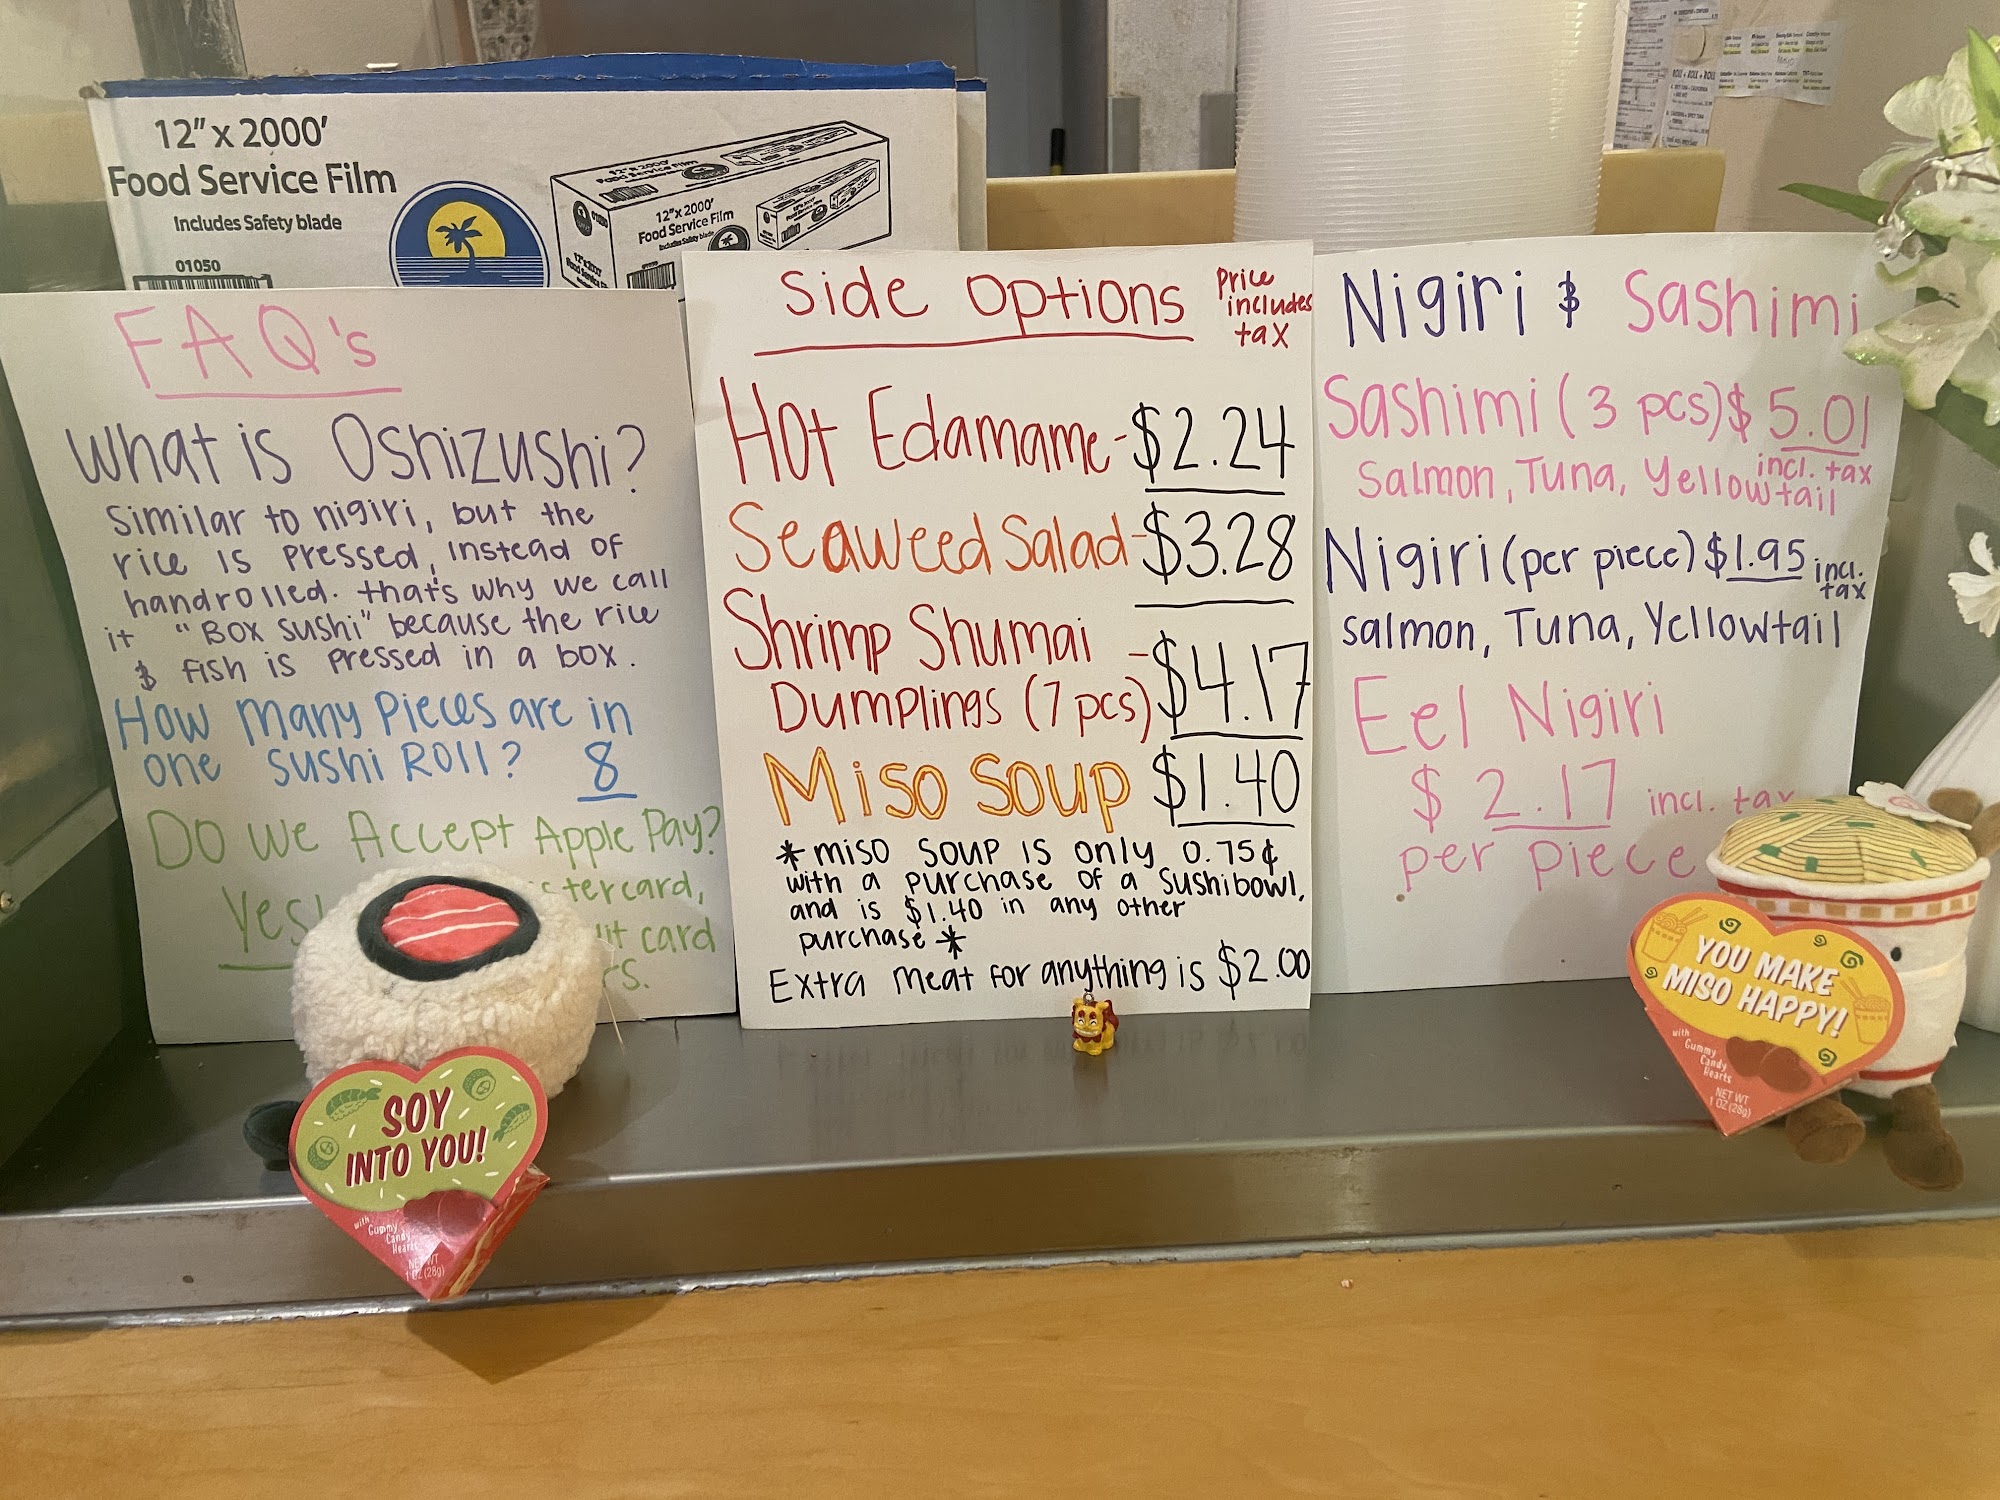 12" x 2000'
Food Service Film
Includes Safety blade
01050
12" x 2000'
Food Service Film
Includes Safety blade
12" x 2000'
Food Service Film
FAQ's
What is Oshizushi?
Similar to nigiri, but the
rice is pressed, instead of
handrolled. that's why we call
it "Box sushi" because the rice
& fish is pressed in a box.
How many pieces are in
one sushi Roll? 8
Do we Accept Apple Pay?
Yes!
card
Side Options
Price
includes
tax
Hot Edamame - $2.24
Seaweed Salad - $3.28
Shrimp Shumai
Dumplings (7 pcs) - $4.17
Miso Soup $1.40
*miso soup is only 0.75¢
with a purchase of a sushi bowl,
and is $1.40 in any other
purchase*
Extra meat for anything is $2.00
Nigiri & Sashimi
Sashimi (3 pcs) $5.01
incl. tax
Salmon, Tuna, Yellowtail
Nigiri (per piece) $1.95 incl.
tax
salmon, Tuna, Yellowtail
Eel Nigiri
$2.17 incl. tax
per piece
SOY
INTO YOU!
with
Gummy
Candy
Hearts
NET WT
1 OZ (28g)
YOU MAKE
MISO HAPPY!
with
Gummy
Candy
Hearts
NET WT
1 OZ (28g)